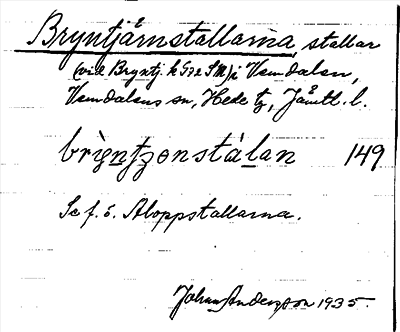 Bryntjärnstallarna, stallar
(vid Bryntj. k G2e SM) i Vemdalen,
Vemdalens sn, Hede tg, Jämtl. l.
brìentʒenstàlan 149
Se f. ö. Aloppstallarna.
Johan Andersson 1935.